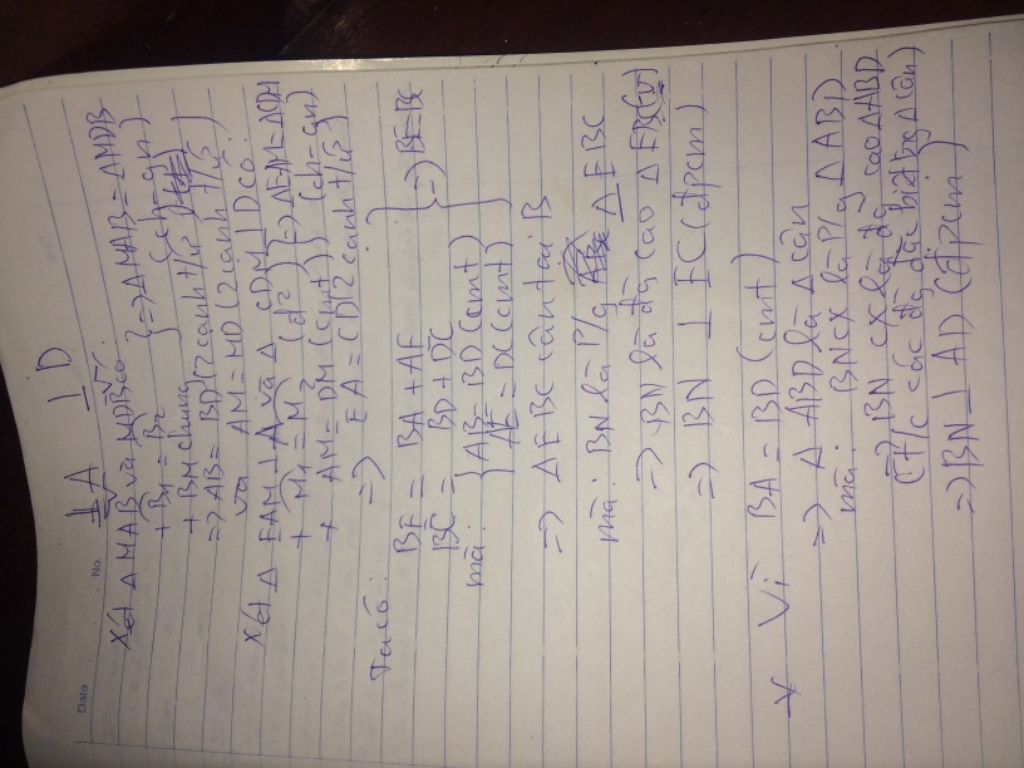 Date No.
⊥A ⊥D
Xét Δ MAB và MDB có:
+ B1 = B2
+ BM chung
} => ΔMAB = ΔMDB (ch-gn)
=> AB = BD (2 cạnh t/ư)
và AM = MD (2 cạnh t/ứ)
Xét Δ EAM ⊥ A và Δ CDM ⊥ D có:
+ M1 = M2 (đ²)
+ AM = DM (cmt)
(ch-gn)
=> EA = CD (2 cạnh t/ứ)
Ta có:
BE = BA + AE
BC = BD + DC
mà: { AB = BD (cmt)
AE = DC (cmt)
} => BE = BC
=> ΔEBC cân tại B
mà: BN là P/g ΔEBC
=> BN là đg cao ΔEBC
=> BN ⊥ EC (đpcm)
Vì BA = BD (cmt)
=> Δ ABD là Δ cân
mà: BN cx là P/g ΔABD
=> BN cx là đg cao ΔABD
(T/c các đg đặc biệt trg Δ cân)
=> BN ⊥ AD (đpcm)